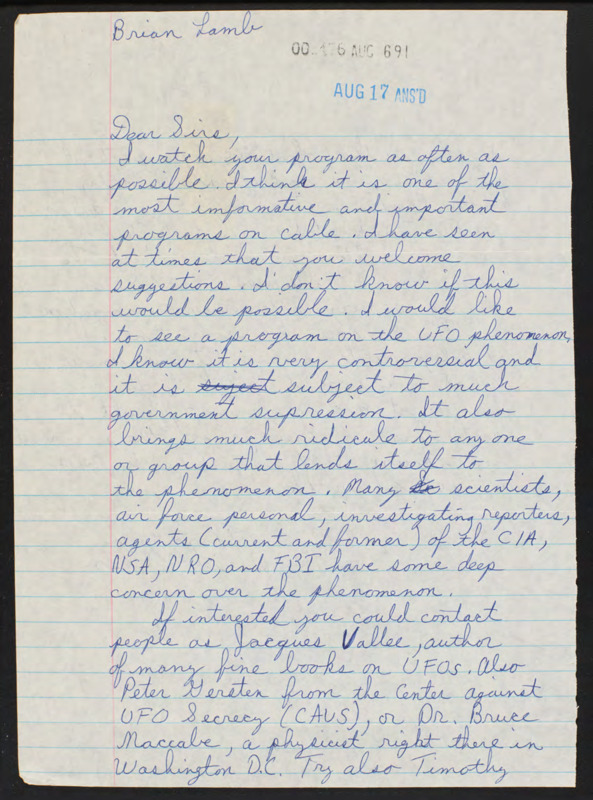 Brian Lamb
AUG 6 91
AUG 17 ANS'D
Dear Sirs,
I watch your program as often as
possible. I think it is one of the
most informative and important
programs on cable. I have seen
at times that you welcome
suggestions. I don't know if this
would be possible. I would like
to see a program on the UFO phenomenon,
I know it is very controversial and
it is suject subject to much
government supression. It also
brings much ridicule to any one
or group that lends itself to
the phenomenon. Many scientists,
air force personal, investigating reporters,
agents (current and former) of the CIA,
NSA, NRO, and FBI have some deep
concern over the phenomenon.
If interested you could contact
people as Jacques Vallee, author
of many fine books on UFOs. Also
Peter Gersten from the Center against
UFO Secrecy (CAUS), or Dr. Bruce
Maccabe, a physicist right there in
Washington D.C. Try also Timothy